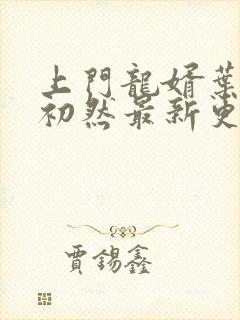 上門龍婿葉
初然最新更
賈錫鑫